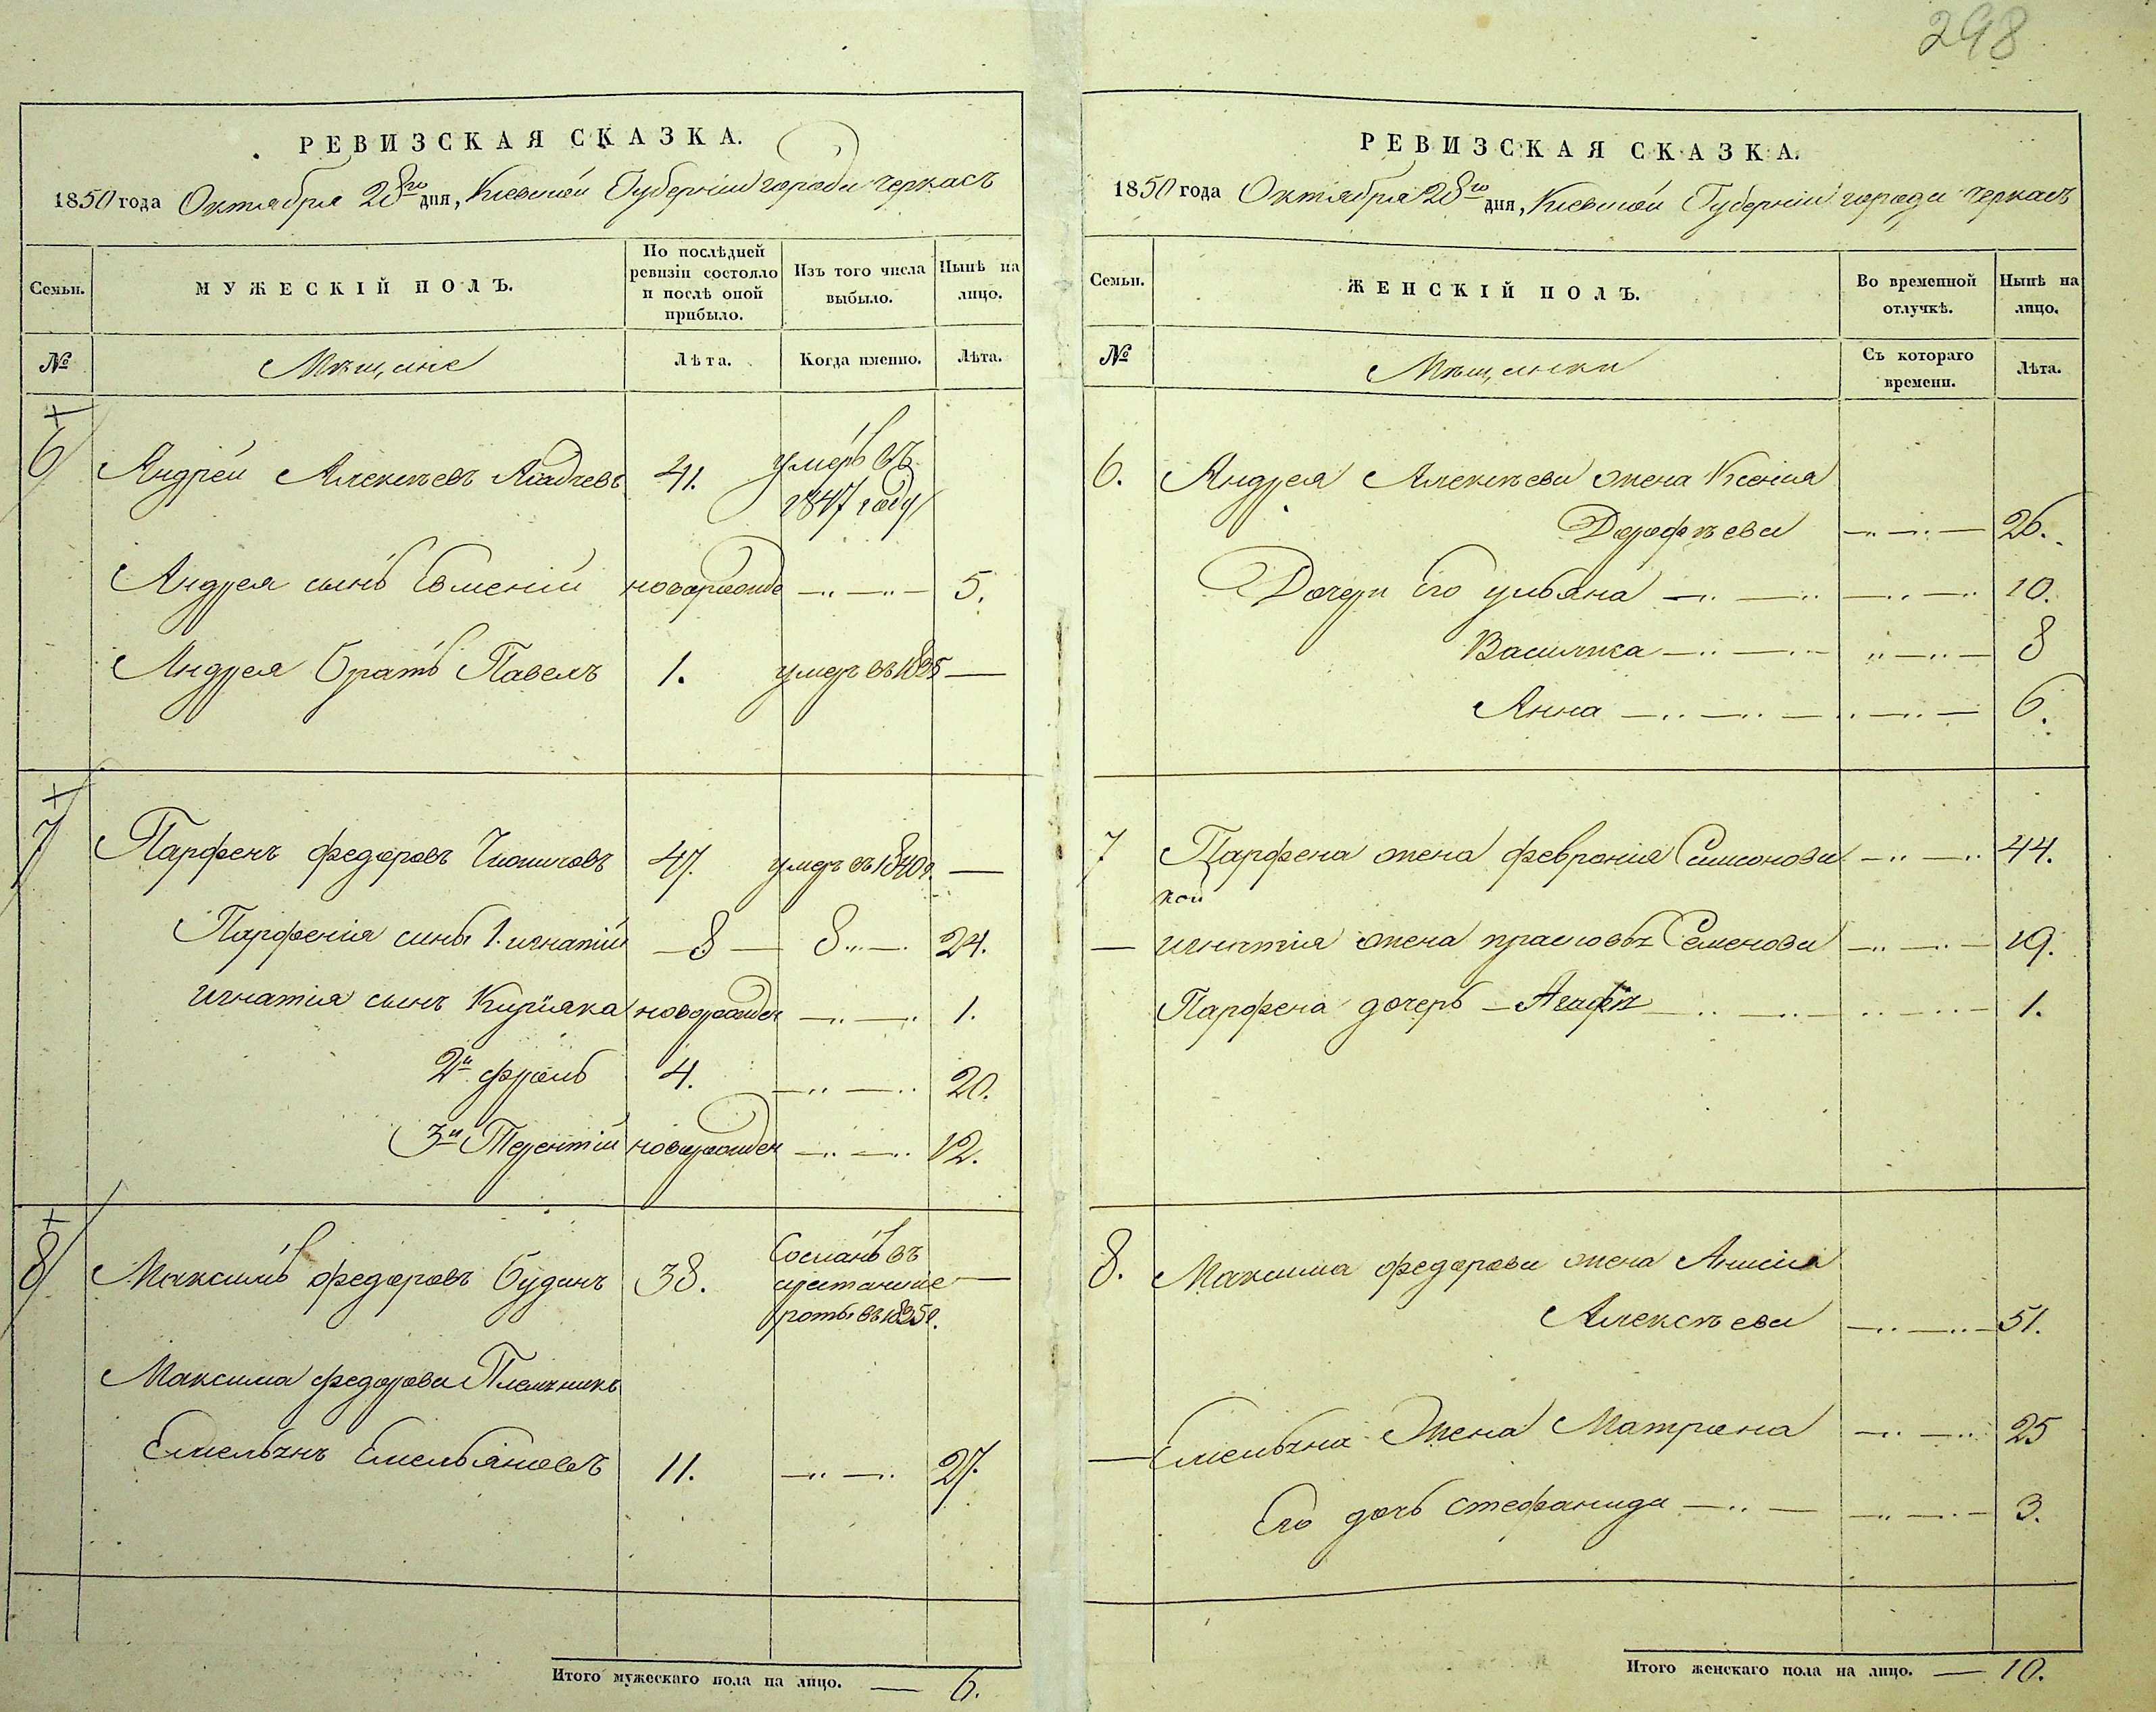 298
РЕВИЗСКАЯ СКАЗКА.
1850 года Октября 28го дня, Киевской Губернии города Черкасъ
Семьи.
МУЖЕСКІЙ ПОЛЪ.
По послѣдней ревизіи состояло и послѣ оной прибыло.
Изъ того числа выбыло.
Нынѣ на лицо.
№
Мѣщане
Лѣта.
Когда именно.
Лѣта.
6
Андрей Алексѣевъ 41. умеръ въ
1847 году
Андрея сынъ Евменій новорожде — 5.
Андрея братъ Павелъ 1. умеръ въ 1835 —
7
Парфенъ Федоровъ 47. умеръ въ 1840г. —
Парфенія сынъ 1. Игнатій — 8 — 8 — 24.
Игнатія сынъ Киріяка новорожден — 1.
2й Фролъ 4. — 20.
3й Терентій новорожден — 12.
8
Максимъ Федоровъ Будинъ 38. Сосланъ въ
арестанские —
роты въ 1835г.
Максима Федорова Племѣникъ
Емельянъ Емельяновъ 11. — 27.
Итого мужескаго пола на лицо. — 6.
РЕВИЗСКАЯ СКАЗКА.
1850 года Октября 28го дня, Киевской Губерніи города Черкасъ
Семьи.
ЖЕНСКІЙ ПОЛЪ.
Во временной отлучкѣ.
Нынѣ на лицо.
№
Мѣщанки
Съ котораго времени.
Лѣта.
6. Андрея Алексѣева жена Ксенія
Дорофѣева — 26.
Дочери Его Ульяна — 10.
Василиса — 8
Анна — 6.
7 Парфена жена Февронія Симонова — 44.
— Игнатія жена Прасковья Семенова — 19.
Парфена дочерь — 1.
8. Максима Федорова жена Анисія
Алексѣева — 51.
— Емельяна Жена Матрена — 25
Его дочь Стефанида — 3.
Итого женскаго пола на лицо. — 10.